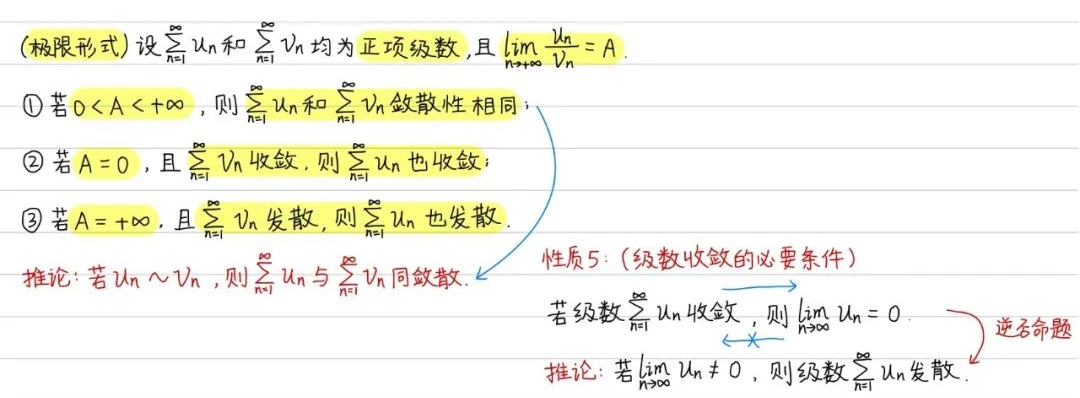 (极限形式) 设 ∑_{n=1}^{∞} u_n 和 ∑_{n=1}^{∞} v_n 均为正项级数, 且 lim_{n→+∞} u_n/v_n = A.
① 若 0 < A < +∞, 则 ∑_{n=1}^{∞} u_n 和 ∑_{n=1}^{∞} v_n 敛散性相同;
② 若 A = 0, 且 ∑_{n=1}^{∞} v_n 收敛, 则 ∑_{n=1}^{∞} u_n 也收敛;
③ 若 A = +∞, 且 ∑_{n=1}^{∞} v_n 发散, 则 ∑_{n=1}^{∞} u_n 也发散.
推论: 若 u_n ~ v_n, 则 ∑_{n=1}^{∞} u_n 与 ∑_{n=1}^{∞} v_n 同敛散.
性质5: (级数收敛的必要条件)
若级数 ∑_{n=1}^{∞} u_n 收敛, 则 lim_{n→∞} u_n = 0.
逆否命题
推论: 若 lim_{n→∞} u_n ≠ 0, 则级数 ∑_{n=1}^{∞} u_n 发散.